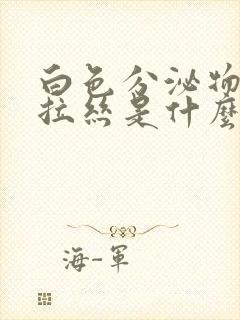 白色分泌物
拉絲是什麼
海-軍